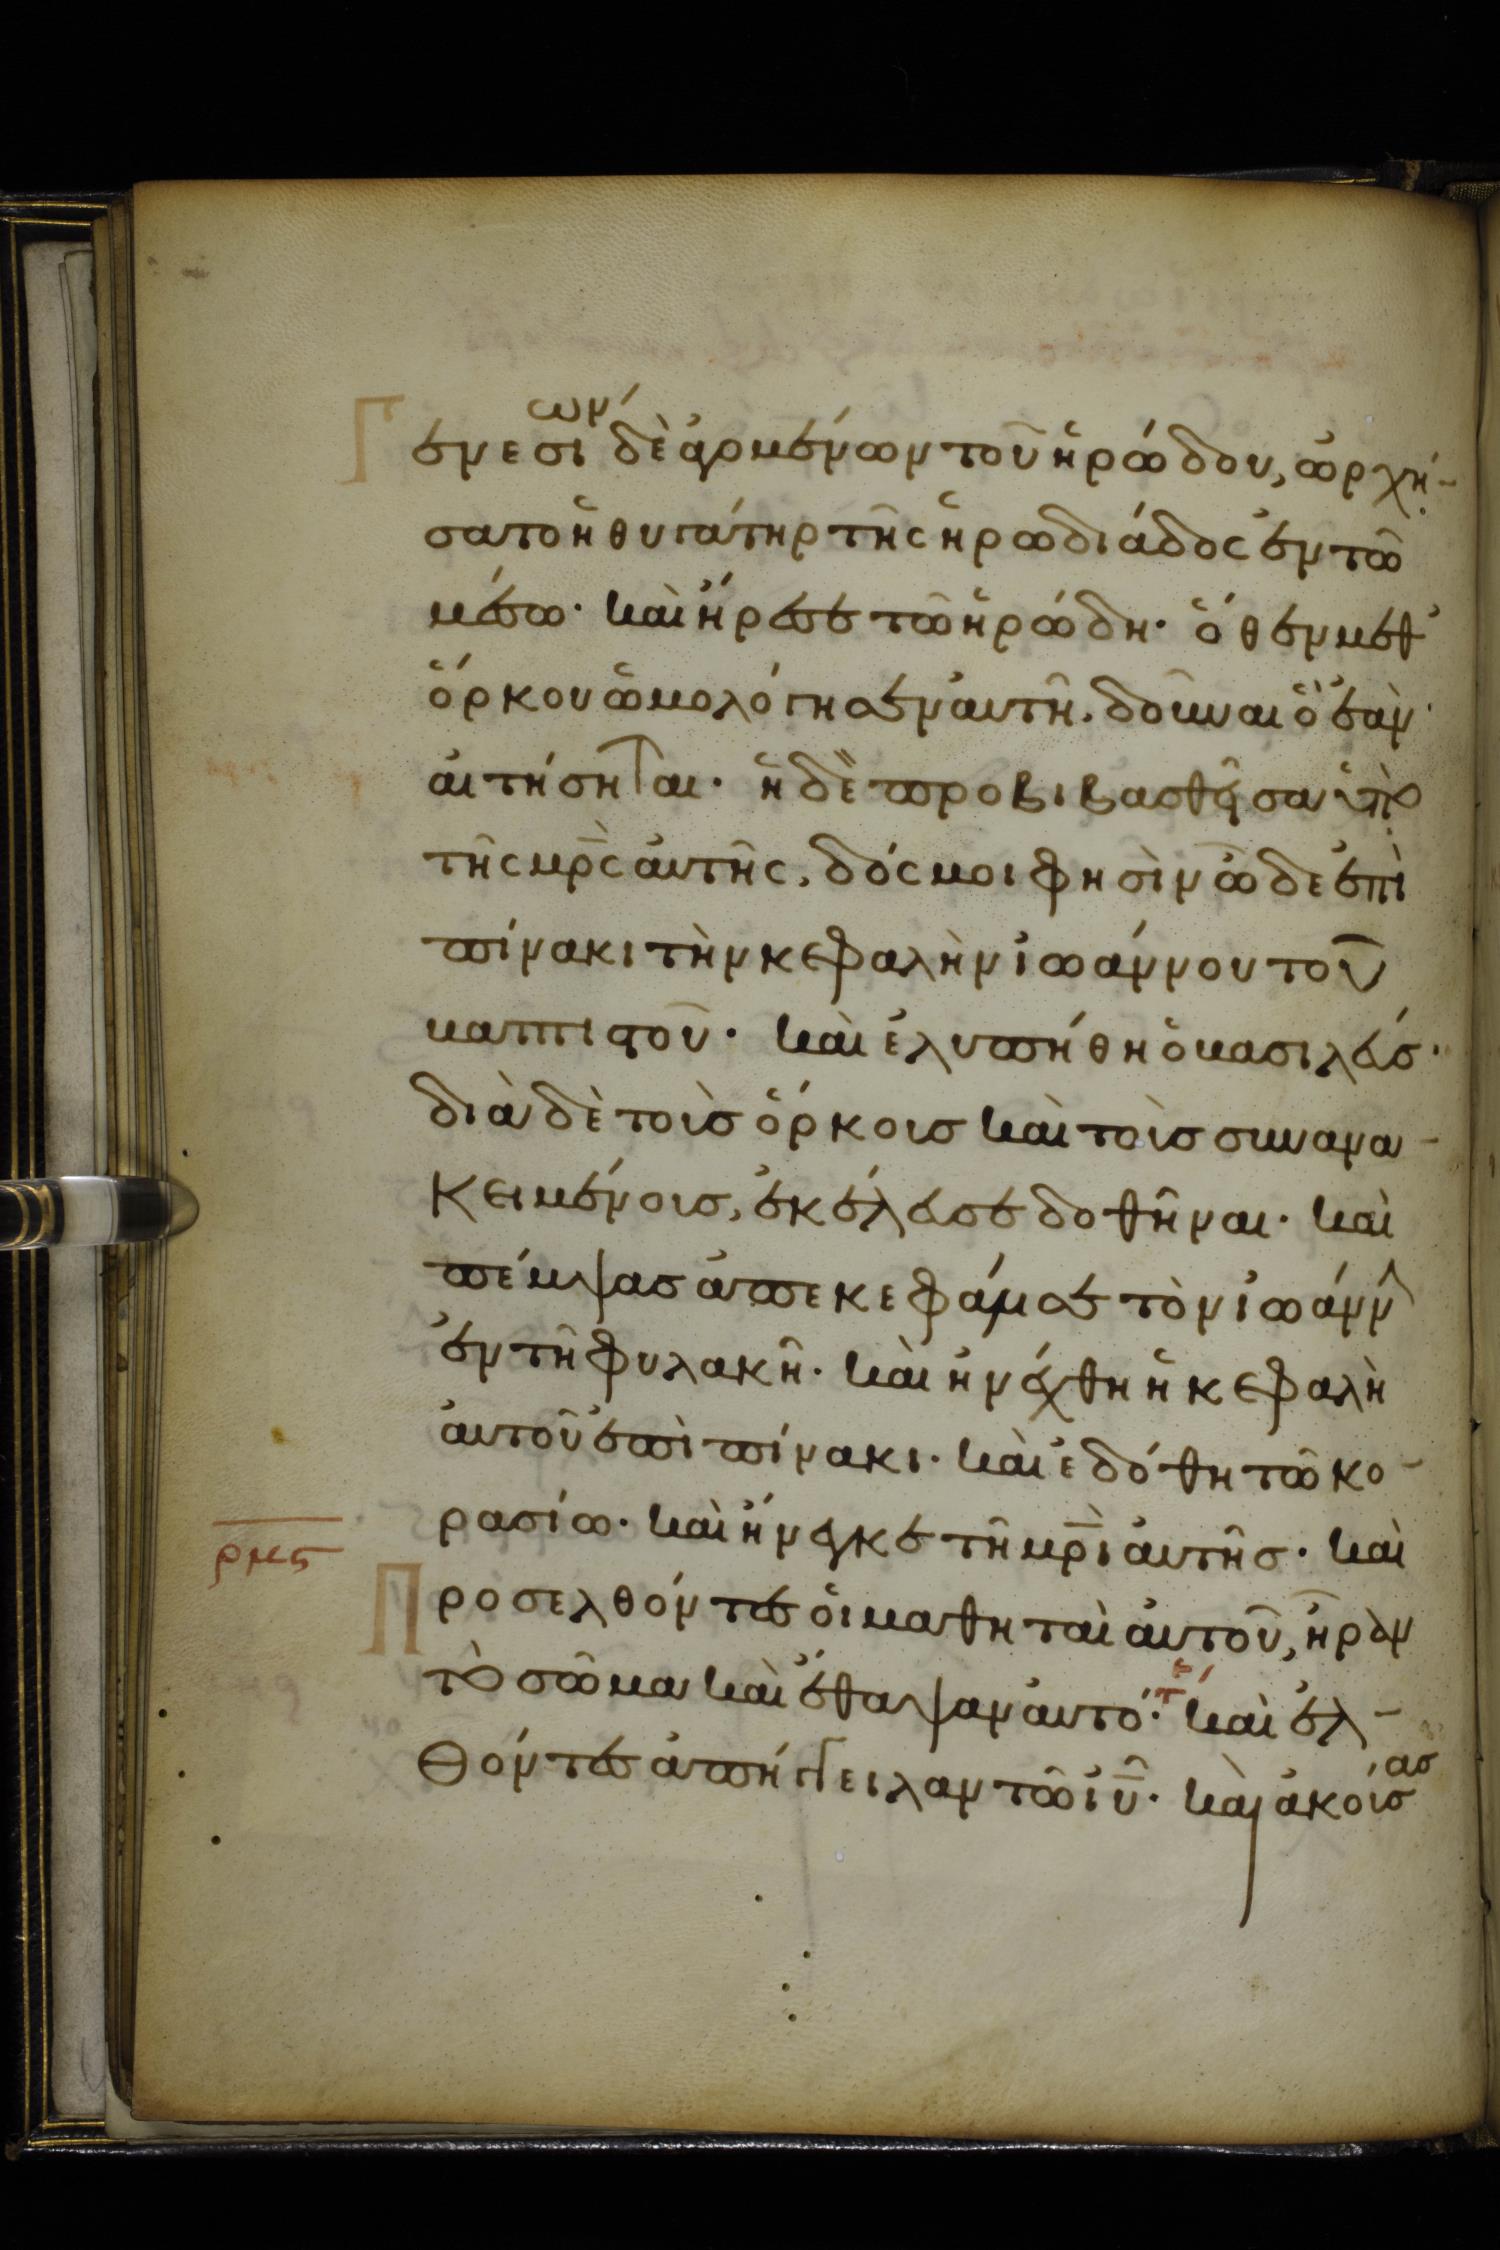 Γενεσίων
δὲ ἀγομένων τοῦ ἡρώδου, ὠρχή-
σατο ἡ θυγάτηρ τῆς ἡρωδιάδος ἐν τῶ
μέσω· καὶ ἤρεσε τῶ ἡρώδη· ὅθεν μεθ'
ὅρκου ὡμολόγησεν αὐτῆ. δοῦναι ὃ ἐὰν
αἰτήσηται· ἡ δὲ προβιβασθεῖσα ὑπὸ
τῆς μρ̅ς αὐτῆς, δός μοι φησὶν ὧδε ἐπὶ
πίνακι τὴν κεφαλὴν ἰωάννου τοῦ
βαπτιστοῦ· καὶ ἐλυπήθη ὁ βασιλεύς·
διὰ δὲ τοὺς ὅρκους καὶ τοὺς συνανα-
κειμένους, ἐκέλευσε δοθῆναι· καὶ
πέμψας ἀπεκεφάλισε τὸν ἰωάννην
ἐν τῆ φυλακῆ· καὶ ἠνέχθη ἡ κεφαλὴ
αὐτοῦ ἐπὶ πίνακι· καὶ ἐδόθη τῶ κο-
ρασίω· καὶ ἤνεγκε τῆ μρ̅ὶ αὐτῆς· καὶ
ρμς
Προσελθόντες οἱ μαθηταὶ αὐτοῦ, ἦραν
τὸ σῶμα καὶ ἔθαψαν αὐτό· καὶ ἐλ-
θόντες ἀπήγγειλαν τῶ ιυ̅· καὶ ἀκούσας